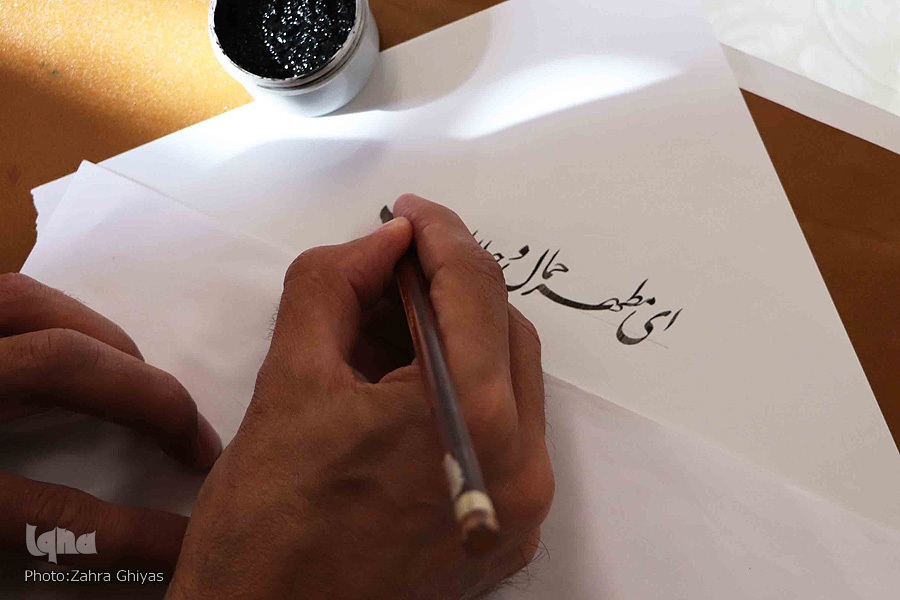 ای مظهر جمال و
Iqna
Photo:Zahra Ghiyas